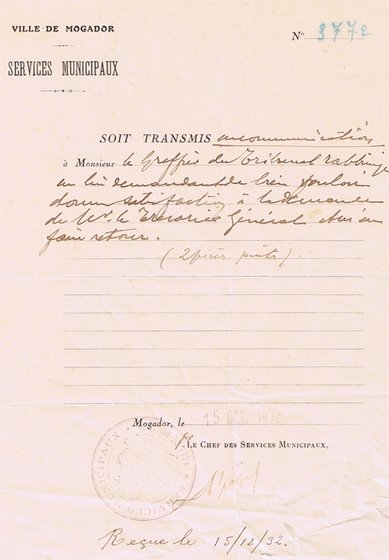 VILLE DE MOGADOR
N° 3772
SERVICES MUNICIPAUX
SOIT TRANSMIS en communication
à Monsieur le Greffier du Tribunal rabbinique
en lui demandant de bien vouloir
donner satisfaction à la demande
de Mr. le Trésorier Général et m'en
faire retour.
(2 pièces jointes).
Mogador, le 15 DEC 1932
P. LE CHEF DES SERVICES MUNICIPAUX,
SERVICES MUNICIPAUX
Reçue le 15/12/32.